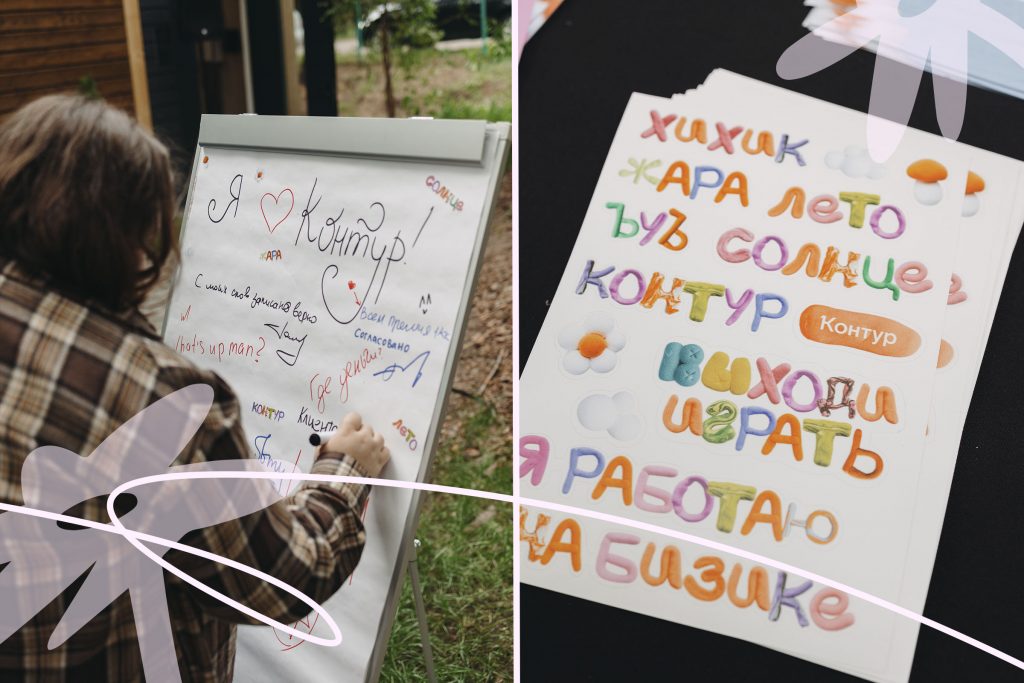 Я ♡ Контур!
солнце
ЖАРА
С моих слов записано верно
What's up man?
Всем премия
согласовано
Где деньги?
КОНТУР
ЛЕТО
ХИХИК
ЖАРА ЛЕТО
ЪУЪ СОЛНЦЕ
КОНТУР Контур
ВЫХОДИ
ИГРАТЬ
Я РАБОТАЮ
НА БИЗИКЕ